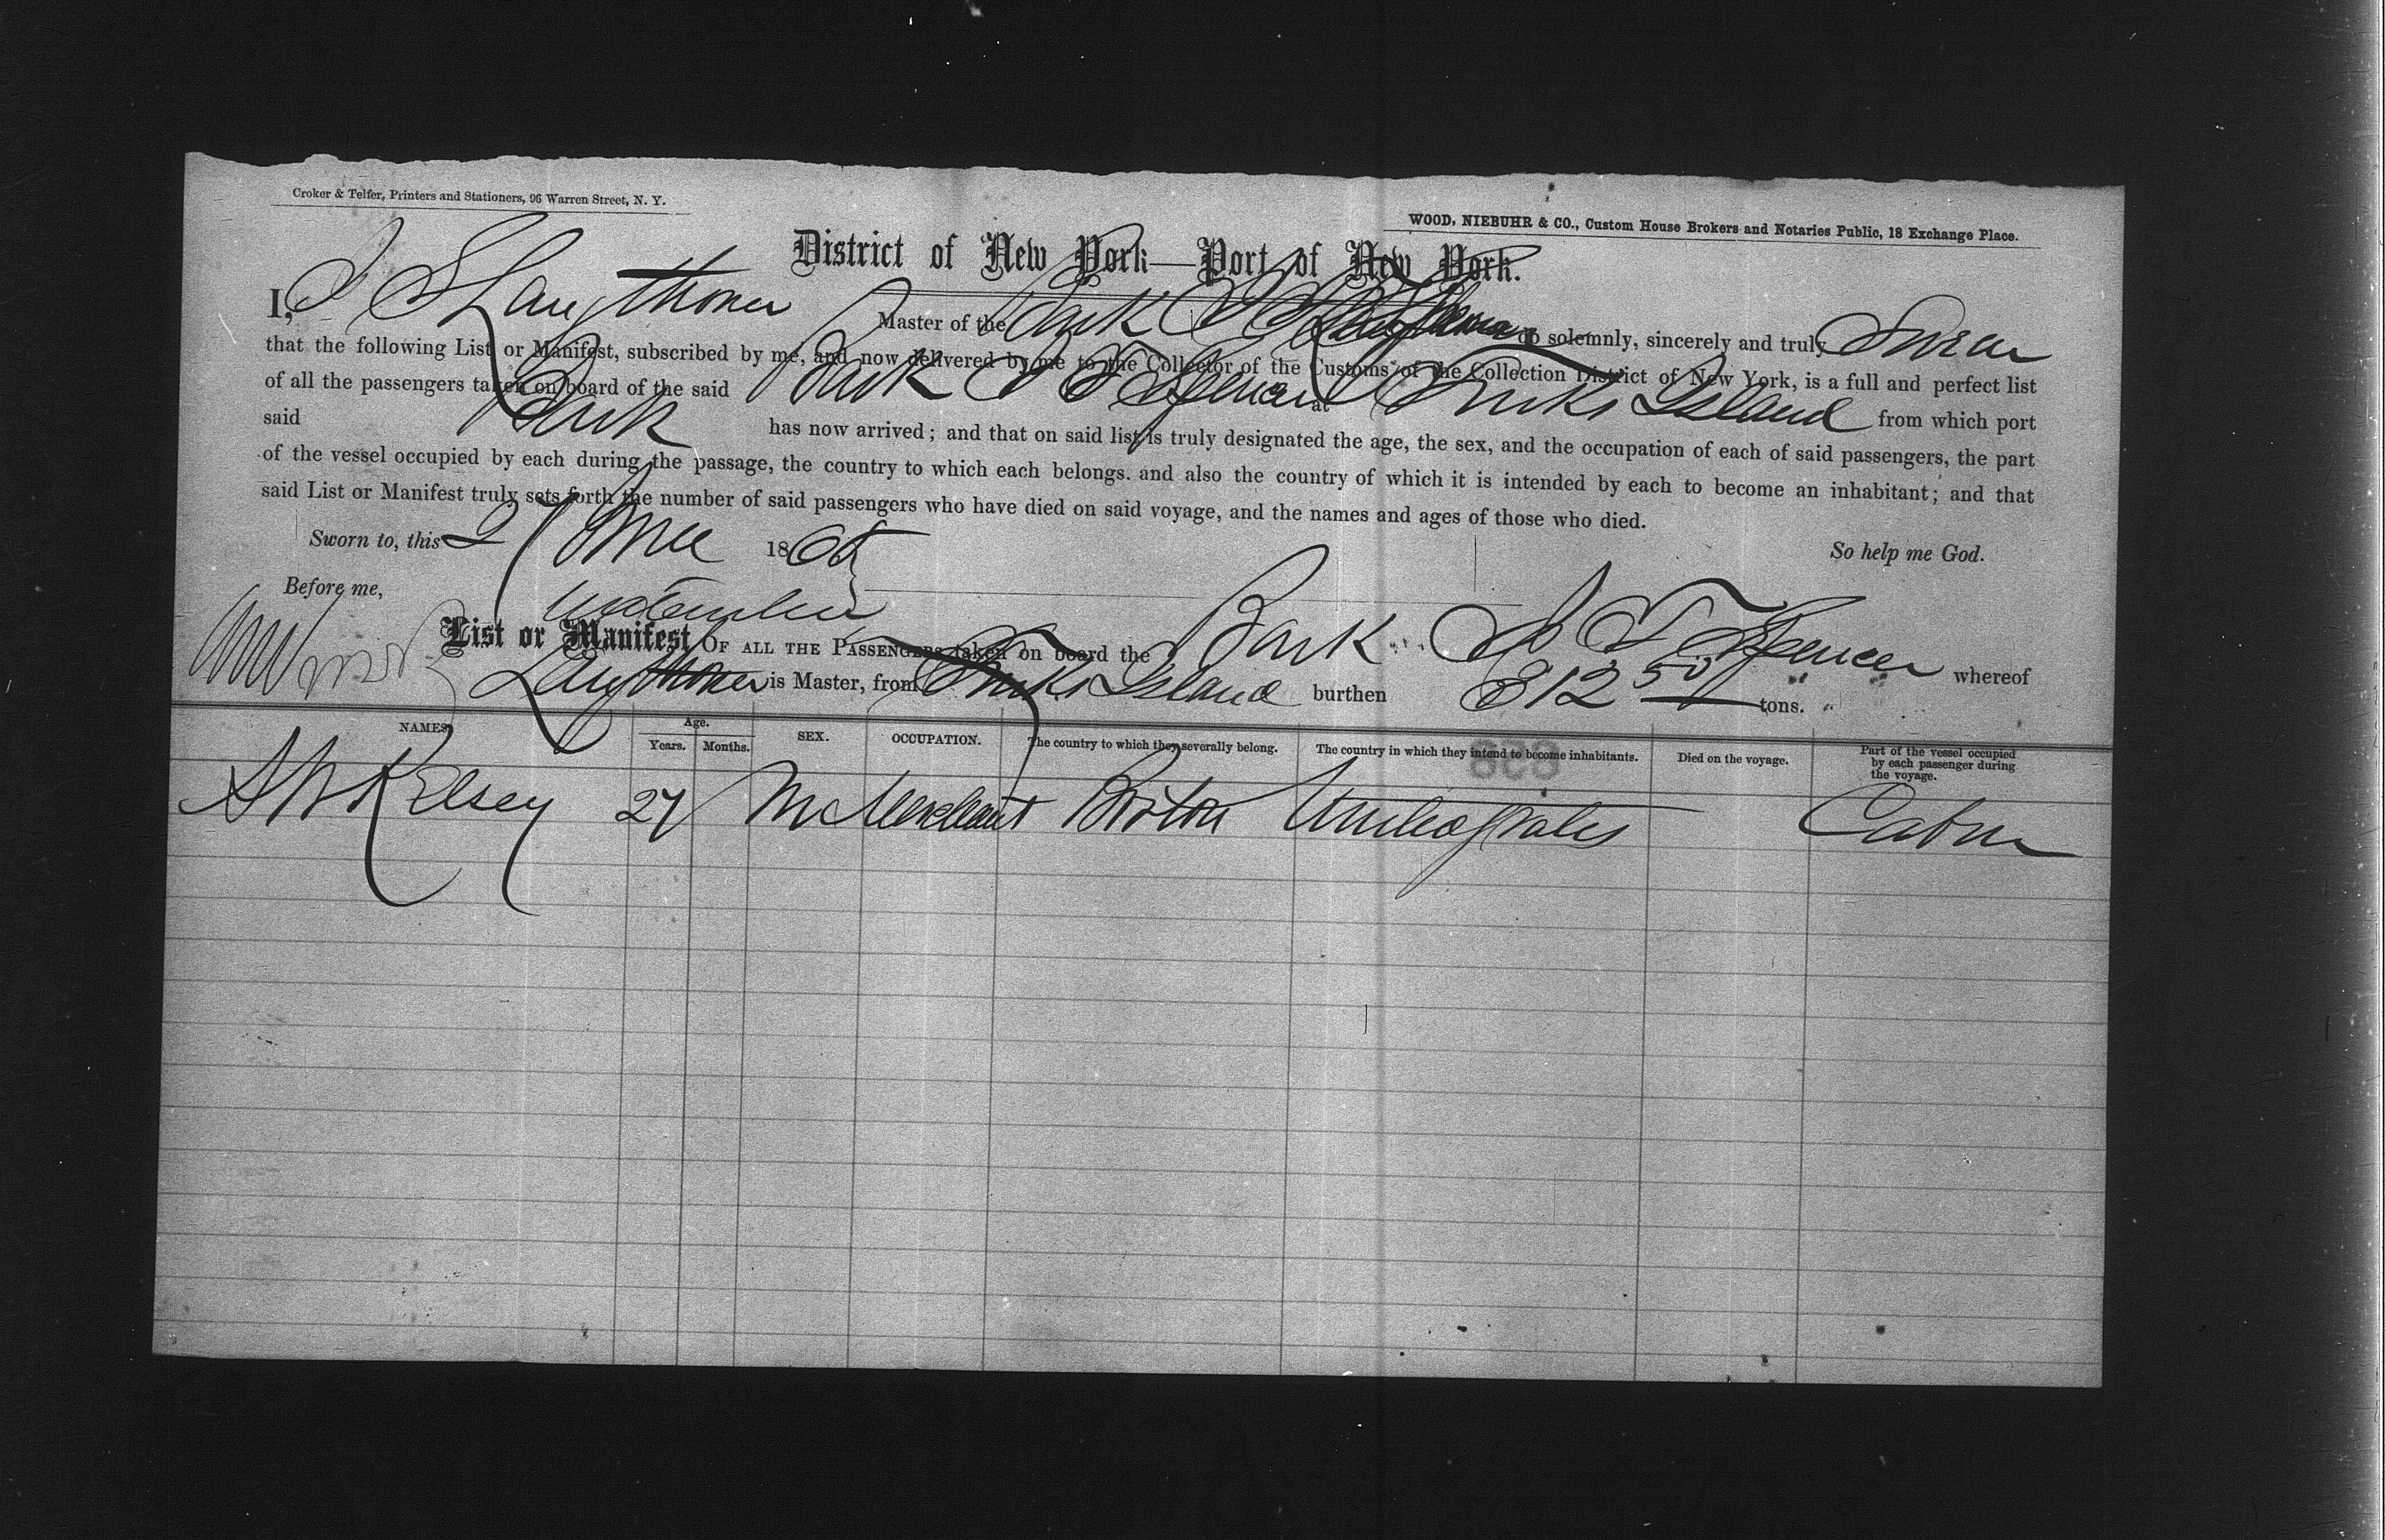 Croker & Telfer, Printers and Stationers, 96 Warren Street, N. Y.
WOOD, NIEBUHR & CO., Custom House Brokers and Notaries Public, 18 Exchange Place.
District of New York—Port of New York.
I, Master of the Bark do solemnly, sincerely and truly Swear
that the following List or Manifest, subscribed by me, and now delivered by me to the Collector of the Customs of the Collection District of New York, is a full and perfect list
of all the passengers taken on board of the said Bark Spencer at Turks Island from which port
said Bark has now arrived; and that on said list is truly designated the age, the sex, and the occupation of each of said passengers, the part
of the vessel occupied by each during the passage, the country to which each belongs. and also the country of which it is intended by each to become an inhabitant; and that
said List or Manifest truly sets forth the number of said passengers who have died on said voyage, and the names and ages of those who died.
Sworn to, this 27 1865 So help me God.
Before me,
List or Manifest OF ALL THE PASSENGERS taken on board the Bark Spencer whereof
is Master, from Turks Island burthen 812 50 tons.
NAMES Age. Years. Months. SEX. OCCUPATION. The country to which they severally belong. The country in which they intend to become inhabitants. Died on the voyage. Part of the vessel occupied by each passenger during the voyage.
Kelsey 27 M Merchant United States Cabin